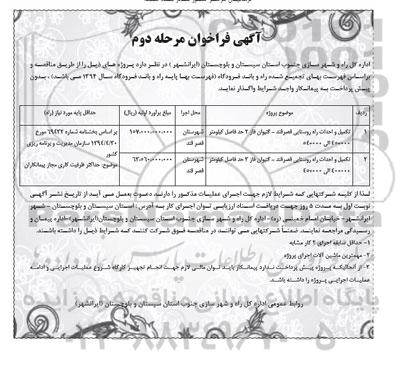 آگهی فراخوان مرحله دوم
اداره کل راه و شهر سازی جنوب استان سیستان و بلوچستان (ایرانشهر) در نظر دارد پروژه های ذیل را از طریق مناقصه و
براساس فهرست بهای تجمیع شده راه و باند فرودگاه (فهرست بها پایه راه و باند فرودگاه سال ۱۳۹۴ می باشد)، بدون
پیش پرداخت به پیمانکار واجد شرایط واگذار نماید.
ردیف موضوع پروژه محل اجرا مبلغ برآورد اولیه (ریال) حداقل پایه مورد نیاز (راه)
۱ تکمیل و احداث راه روستایی قصرقند - کتیوان فاز ۲ حد فاصل کیلومتر شهرستان قصر قند ۱۰۷،۰۰۰،۰۰۰،۰۰۰
۲ تکمیل و احداث راه روستایی قصرقند - کتیوان فاز ۳ حد فاصل کیلومتر شهرستان قصر قند
بر اساس بخشنامه شماره ۶۹۴۲۴ مورخ
۱۳۹۴/۴/۳۰ سازمان مدیریت و برنامه ریزی
کشور
موضوع: حداکثر ظرفیت کاری مجاز پیمانکاران
لذا از کلیه شرکتهایی که شرایط لازم جهت اجرای عملیات مذکور را دارند، دعوت بعمل می آید از تاریخ نشر آگهی
نوبت اول به مدت ۵ روز جهت دریافت اسناد ارزیابی توان اجرای کار به آدرس: استان سیستان و بلوچستان - شهر
ایرانشهر - خیابان امام خمینی (ره) - اداره کل راه و شهر سازی جنوب استان سیستان و بلوچستان (ایرانشهر) اداره پیمان و
رسیدگی مراجعه نمایند. ضمناً شرکتهایی می توانند در مناقصه فوق شرکت کنند که شرایط ذیل را داشته باشند.
۱- حداقل سابقه اجرای ۲ کار مشابه
۲- مهمترین ماشین آلات اجرای پروژه
۳- از آنجائیکه پروژه پیش پرداخت ندارد پیمانکار باید توان مالی لازم جهت انجام تجهیز کارگاه شروع عملیات اجرایی و ادامه
عملیات اجرایی پروژه را داشته باشد.
روابط عمومی اداره کل راه و شهر سازی جنوب استان سیستان و بلوچستان (ایرانشهر)